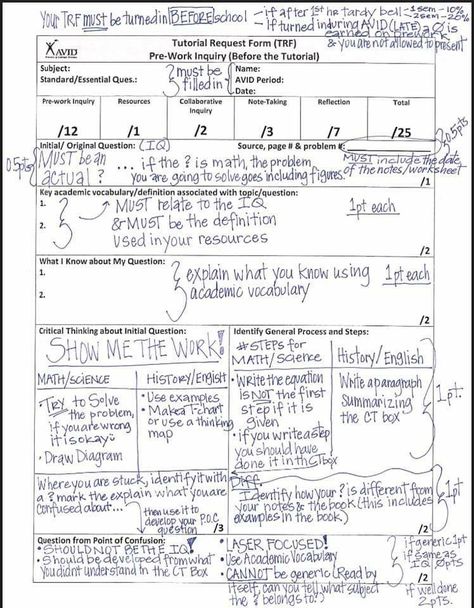 Your TRF MUST be turned in BEFORE school
- if after 1st he tardy bell - 1 sem - 10%
- 2 sem - 20%
- if turned in during AVID (LATE) a 0 is
earned on prework
& you are not allowed to present
AVID
Tutorial Request Form (TRF)
Pre-Work Inquiry (Before the Tutorial)
Subject:
Standard/Essential Ques.:
? must be
filled in
Name:
AVID Period:
Date:
Pre-work Inquiry
Resources
Collaborative
Inquiry
Note-Taking
Reflection
Total
/12
/1
/2
/3
/7
/25
0.5pts
Initial/ Original Question: (IQ)
Source, page # & problem #:
0.5pts
MUST be an
actual ?
... if the ? is math, the problem
you are going to solve goes including figures.
MUST include the date
of the notes/worksheet
/1
Key academic vocabulary/definition associated with topic/question:
1.
2.
MUST relate to the IQ
& MUST be the definition
used in your resources
1pt each
/2
What I Know about My Question:
1.
2.
explain what you know using
academic vocabulary
1pt each
/2
Critical Thinking about Initial Question:
SHOW ME THE WORK!
MATH/SCIENCE
TRY to Solve
the problem,
if you are wrong
it is okay
• Draw Diagram
HISTORY/English
• Use examples
• Make a T-chart
or use a thinking
map
Identify General Process and Steps:
# STEPS for
MATH/Science
• Write the equation
is NOT the first
step if it is
given
• if you write a step
you should have
done it in th CT box
History/English
Write a paragraph
summarizing
the CT box
1pt.
Where you are stuck, identify it with
a ? mark the explain what you are
confused about...
then use it to
develop your P.O.C.
question
/3
Diff
Identify how your ? is different from
your notes & the book (this includes
examples in the book)
1pt
/2
Question from Point of Confusion:
• SHOULD NOT BE THE IQ!
• Should be developed from what
you didnt understand in the CT Box
• LASER FOCUSED!
• Use Academic Vocabulary
• CANNOT be generic (Read by
itself, can you tell what subject
the ? belongs to?)
if generic 1pt
if same as
IQ 0pts
if well done
2pts.
/2